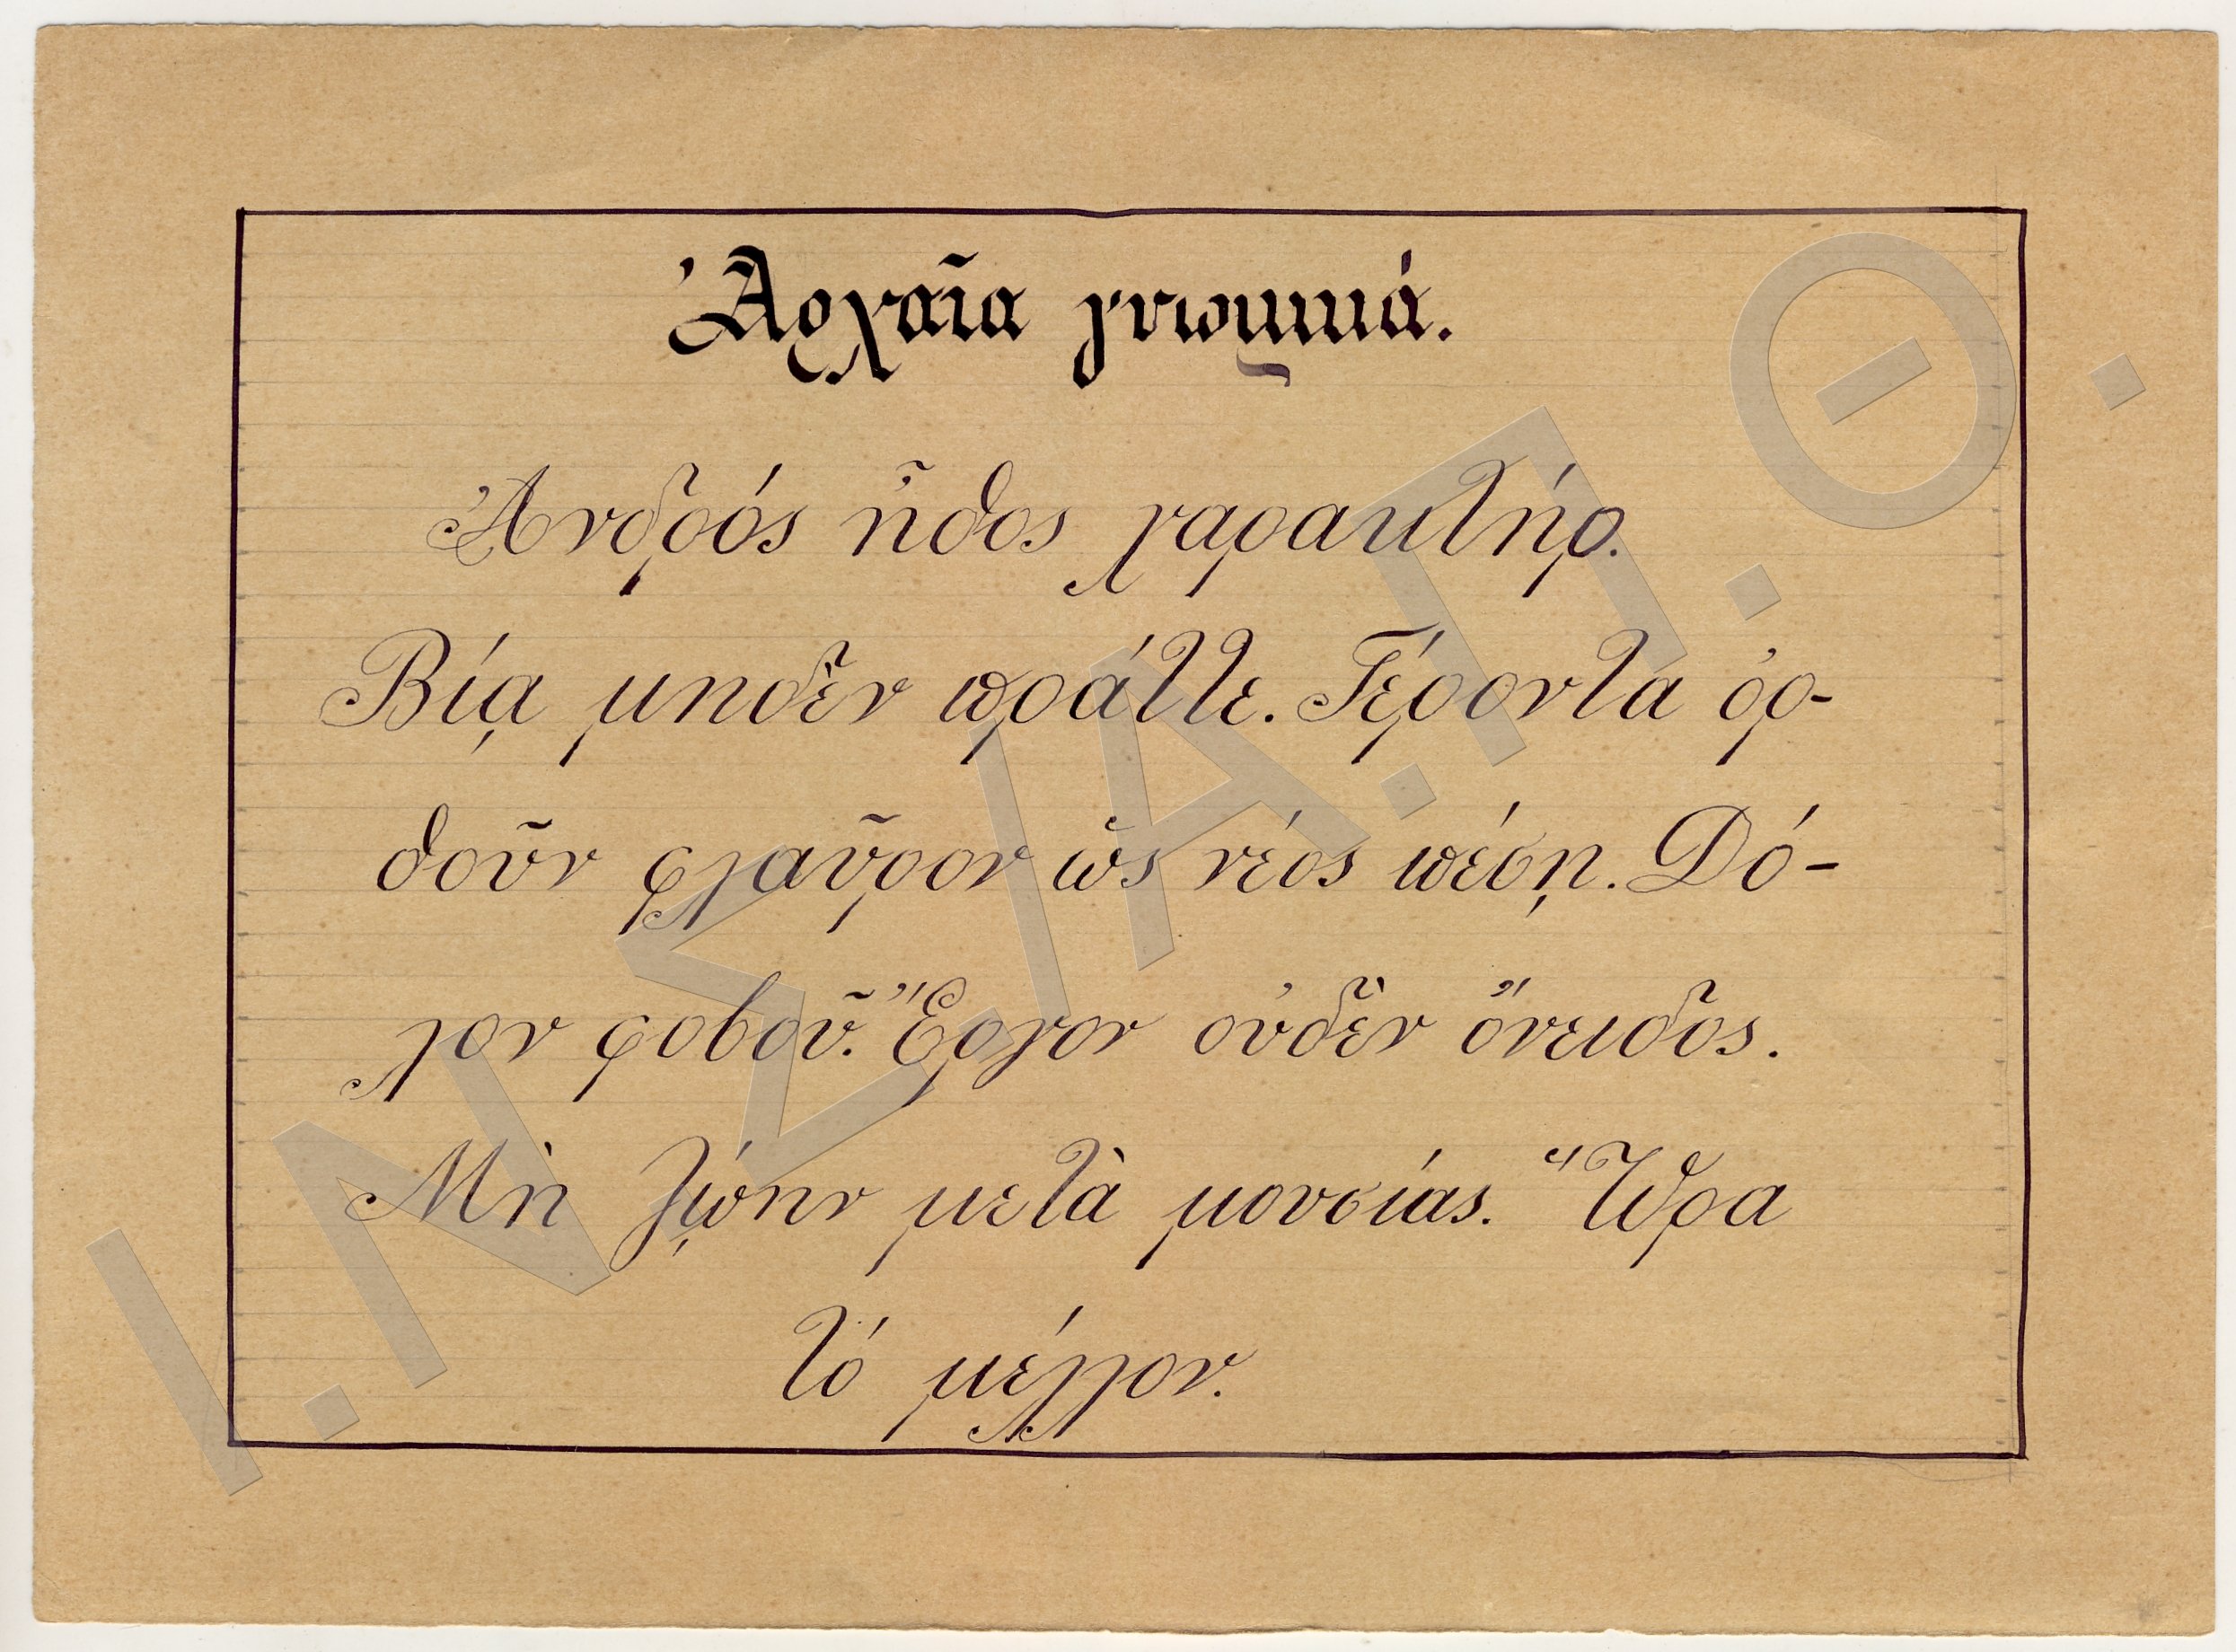 Ἀρχαῖα γνωμικά.
Ἀνδρός ἦθος χαρακτήρ.
Βίᾳ μηδὲν πράττε. Γέροντα ὀρ-
θοῦν φλαῦρον ὣς νέος πέσῃ. Δό-
λον φοβοῦ. Ἔργον οὐδὲν ὄνειδος.
Μὴ ζῴην μετὰ μουσίας. Ὥρα
τό μέλλον.
Ι.ΝΣ./Α.Π.Θ.